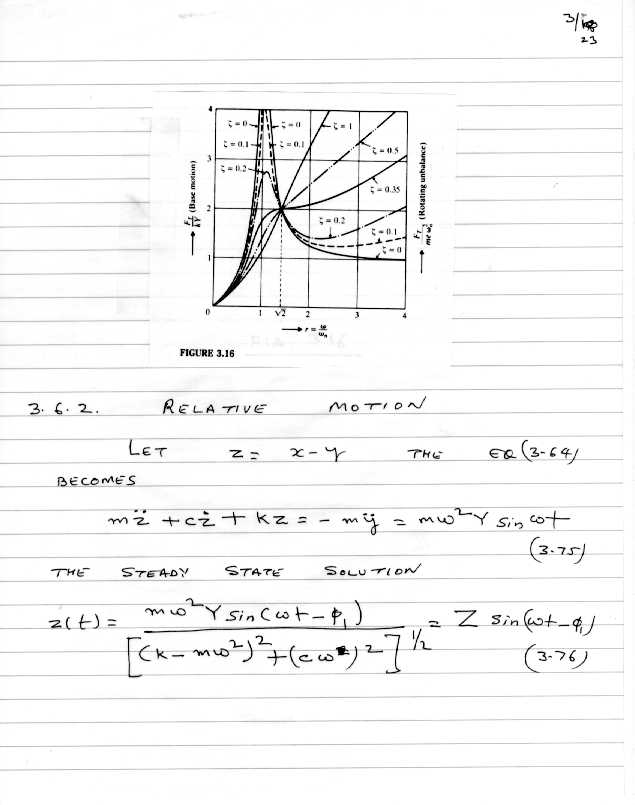 3/
23
4
3
2
1
0
1
√2
2
3
4
ζ = 0
ζ = 0
ζ = 1
ζ = 0.1
ζ = 0.1
ζ = 0.5
ζ = 0.2
ζ = 0.35
ζ = 0.2
ζ = 0.1
ζ = 0
F_T/kY (Base motion)
F_T/meω_n² (Rotating unbalance)
r = ω/ω_n
FIGURE 3.16
3.6.2. RELATIVE MOTION
LET z = x-y THE EQ(3-64)
BECOMES
mz̈ + cż + kz = - mÿ = mω²Y sin ωt
(3-75)
THE STEADY STATE SOLUTION
z(t) = mω²Y sin(ωt-φ₁) / [(k-mω²)²+(cω)²]^1/2 = Z sin(ωt-φ₁)
(3-76)